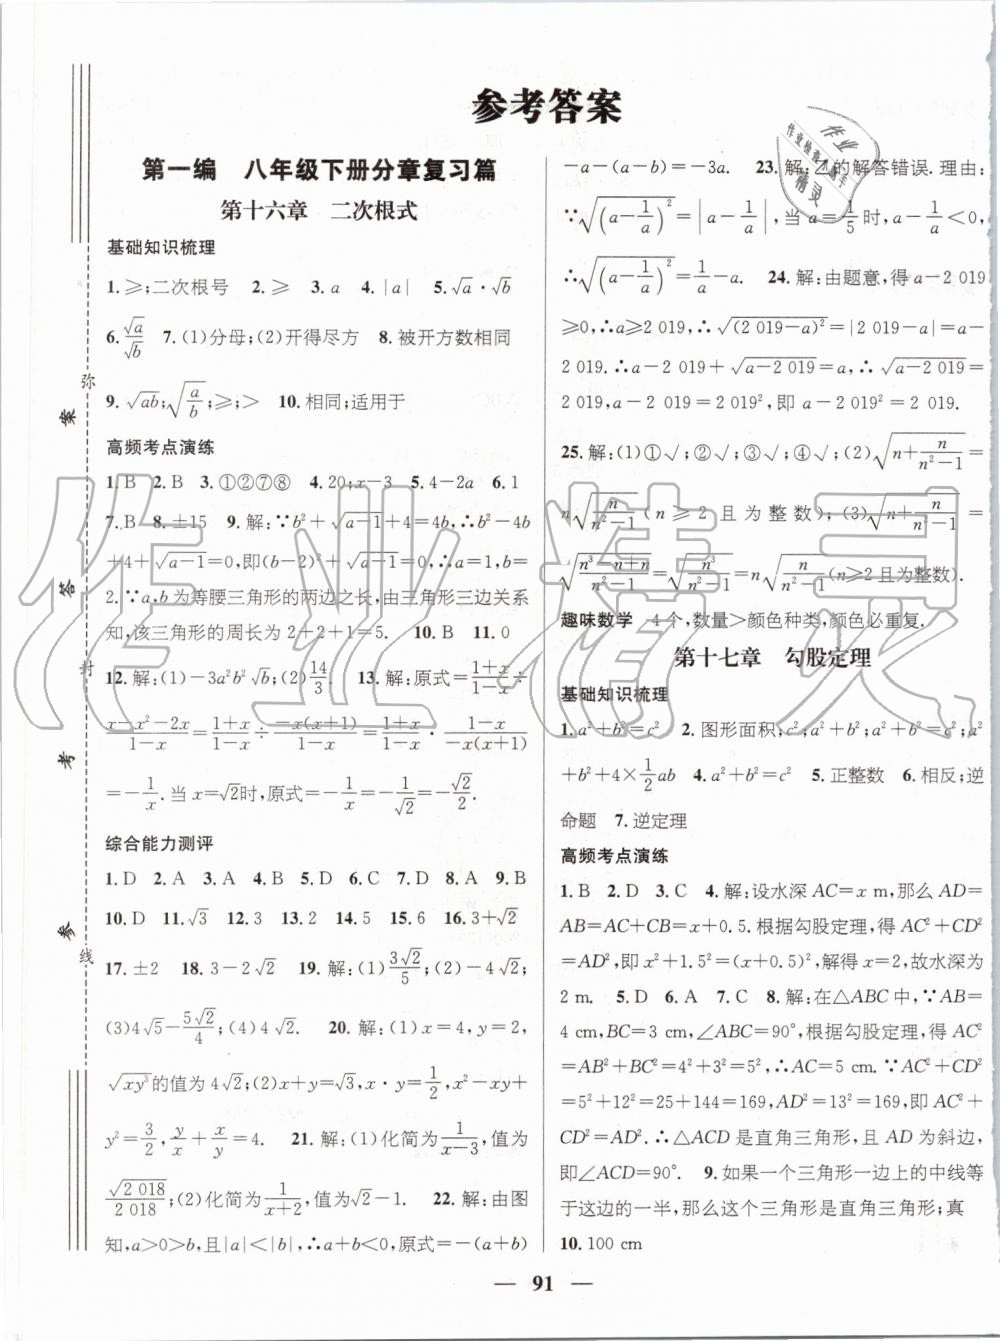 参考答案
第一编 八年级下册分章复习篇
第十六章 二次根式
基础知识梳理
1.≥;二次根号 2.≥ 3.a 4.|a| 5.√a·√b
6.√a/√b 7.(1)分母;(2)开得尽方 8.被开方数相同
9.√ab;√(a/b);≥;> 10.相同;适用于
高频考点演练
1.B 2.B 3.①②⑦⑧ 4.20;x-3 5.4-2a 6.1
7.B 8.±15 9.解:∵b²+√(a-1)+4=4b,∴b²-4b
+4+√(a-1)=0,即(b-2)²+√(a-1)=0,∴a=1,b=
2.∵a,b为等腰三角形的两边之长,由三角形三边关系
知,该三角形的周长为2+2+1=5. 10.B 11.0
12.解:(1)-3a²b²√b;(2)14/3. 13.解:原式=(1+x)/(1-x)÷
(x-x²-2x)/(1-x)=(1+x)/(1-x)÷(-x(x+1))/(1-x)=(1+x)/(1-x)·(1-x)/(-x(x+1))
=-1/x.当x=√2时,原式=-1/x=-1/√2=-√2/2.
综合能力测评
1.D 2.A 3.A 4.B 5.C 6.C 7.D 8.A 9.B
10.D 11.√3 12.2 13.2 14.5 15.6 16.3+√2
17.±2 18.3-2√2 19.解:(1)3√2/5;(2)-4√2;
(3)4√5-5√2/4;(4)4√2 20.解:(1)x=4,y=2,
√(xy³)的值为4√2;(2)x+y=√3,xy=1/2,x²-xy+
y²=3/2,y/x+x/y=4. 21.解:(1)化简为1/√(x-3),值为
√2 018/2 018;(2)化简为1/(√x+2),值为√2-1. 22.解:由图
知,a>0>b,且|a|<|b|,∴a+b<0,原式=-(a+b)
-a-(a-b)=-3a. 23.解:乙的解答错误.理由:
∵√((a-1/a)²)=|a-1/a|,当a=1/5时,a-1/a<0,
∴√((a-1/a)²)=1/a-a. 24.解:由题意,得a-2 019
≥0,∴a≥2 019,∴√((2 019-a)²)=|2 019-a|=a-
2 019.∴a-2 019+√(a-2 019)=a,∴√(a-2 019)=
2 019,a-2 019=2 019²,即a-2 019²=2 019.
25.解:(1)①√;②√;③√;④√;(2)√(n+n/(n²-1))=
n√(n/(n²-1))(n≥2且为整数);(3)√(n+n/(n²-1))=
√((n³-n+n)/(n²-1))=√(n³/(n²-1))=n√(n/(n²-1))(n≥2且为整数).
趣味数学 4个,数量>颜色种类,颜色必重复.
第十七章 勾股定理
基础知识梳理
1.a²+b²=c² 2.图形面积;c²;a²+b²;a²+b²=c²;a²
+b²+4×1/2ab 4.a²+b²=c² 5.正整数 6.相反;逆
命题 7.逆定理
高频考点演练
1.B 2.D 3.C 4.解:设水深AC=x m,那么AD=
AB=AC+CB=x+0.5.根据勾股定理,得AC²+CD²
=AD²,即x²+1.5²=(x+0.5)²,解得x=2,故水深为
2 m. 5.D 6.A 7.C 8.解:在△ABC中,∵AB=
4 cm,BC=3 cm,∠ABC=90°,根据勾股定理,得AC²
=AB²+BC²=4²+3²=5²,∴AC=5 cm.∵AC²+CD²
=5²+12²=25+144=169,AD²=13²=169,即AC²+
CD²=AD².∴△ACD是直角三角形,且AD为斜边,
即∠ACD=90°. 9.如果一个三角形一边上的中线等
于这边的一半,那么这个三角形是直角三角形;真
10.100 cm
— 91 —
弥
封
线
参
考
答
案
作业精灵
作业
作业检查小助手
精灵